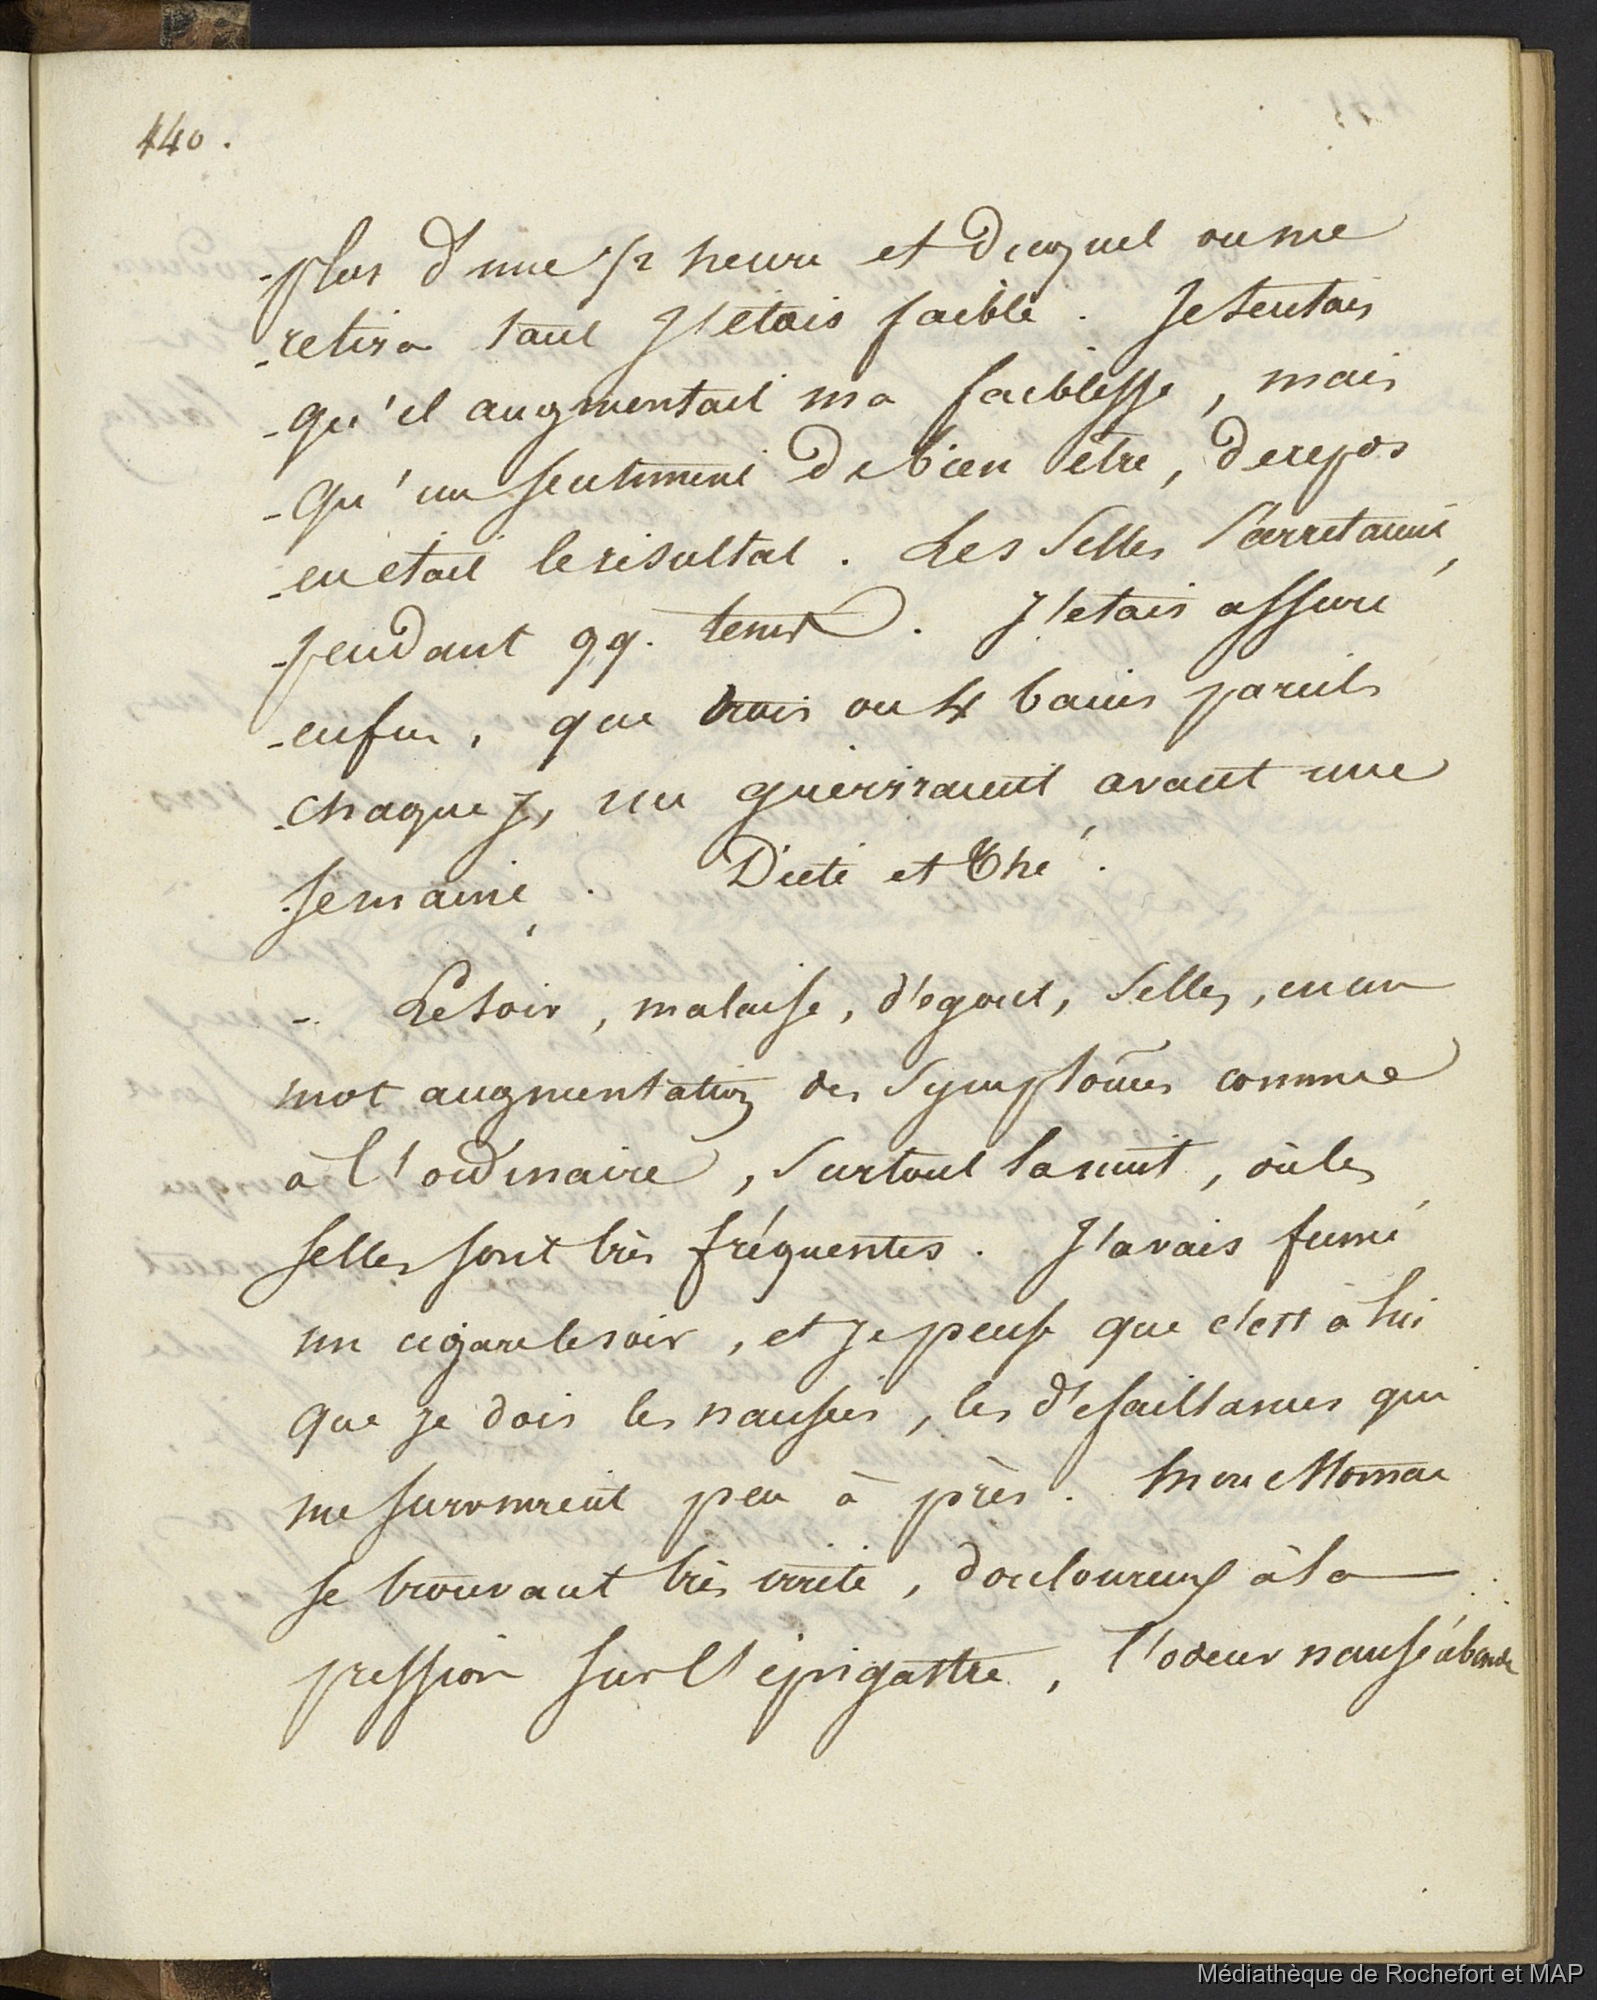 440.
plus d'une 1/2 heure et duquel on me
retira tant J'étais faible. Je sentais
qu'il augmentait ma faiblesse, mais
qu'un sentiment de bien être, de repos
en était le résultat. Les Selles s'arretaient
pendant qq. tems. J'étais assuré
enfin, que trois ou 4 bains pareils
chaque J, me guériraient avant une
semaine. Diète et Thé.
Le soir, malaise, dégout, Selles, en un
mot augmentation des Symptômes comme
à l'ordinaire, Surtout la nuit, où les
selles sont très fréquentes. J'avais fumé
un cigare le soir, et Je pense que c'est à lui
que je dois les nausées, les défaillances qui
me survinrent peu à près. Mon estomac
se trouvant très irrité, douloureux à la
pression sur l'épigastre, l'odeur nauséabonde
Médiathèque de Rochefort et MAP